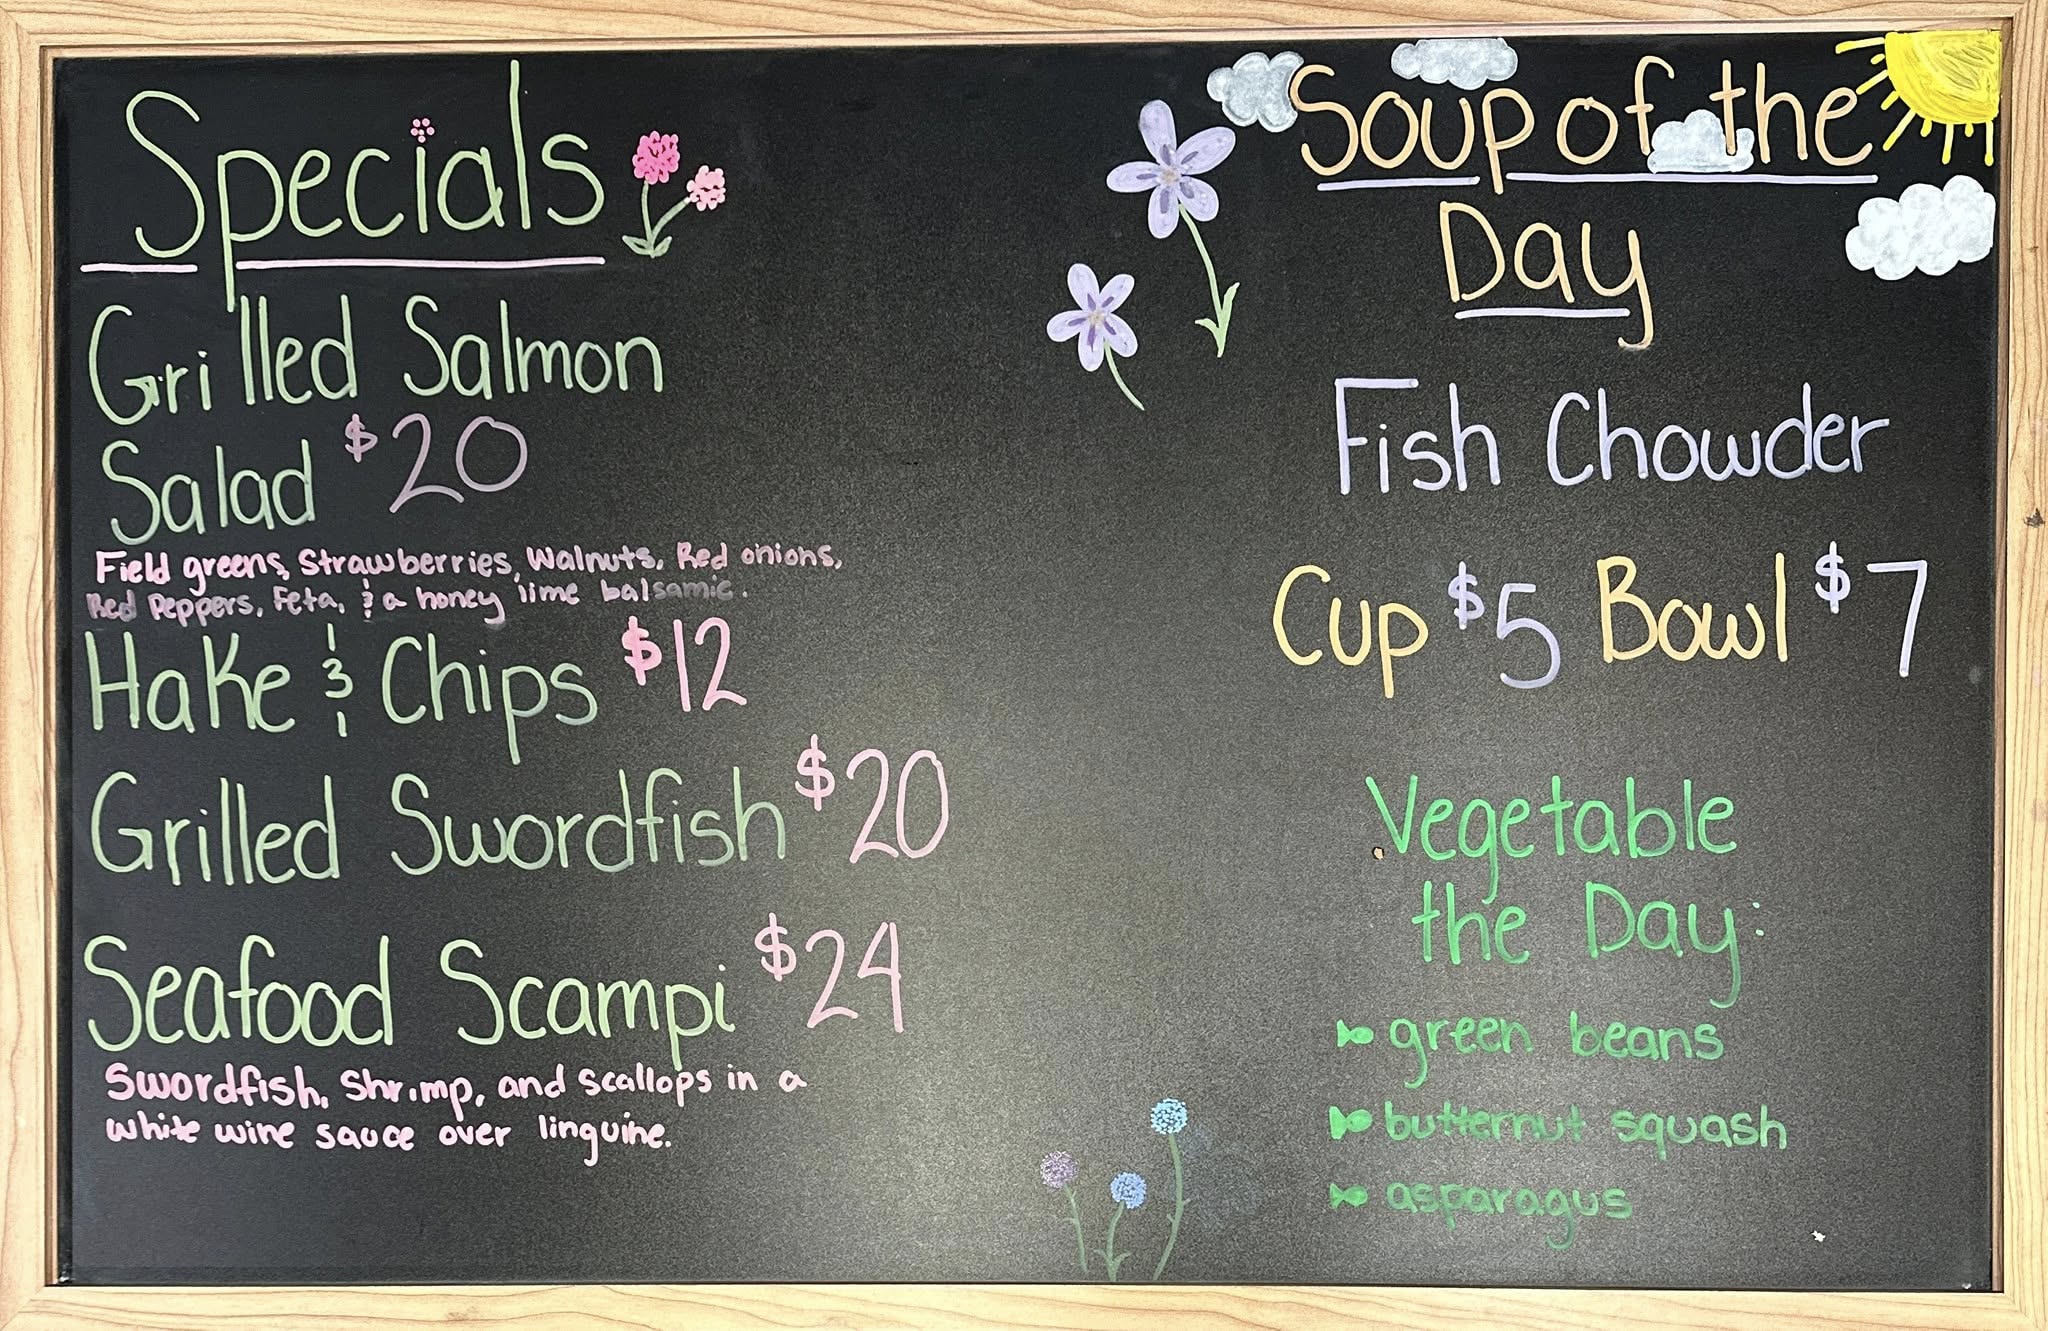 Specials
Grilled Salmon
Salad $20
Field greens, Strawberries, Walnuts, Red onions,
Red Peppers, Feta, & a honey lime balsamic.
Hake & Chips $12
Grilled Swordfish $20
Seafood Scampi $24
Swordfish, Shrimp, and scallops in a
white wine sauce over linguine.
Soup of the
Day
Fish Chowder
Cup $5 Bowl $7
Vegetable
the Day:
green beans
butternut squash
asparagus